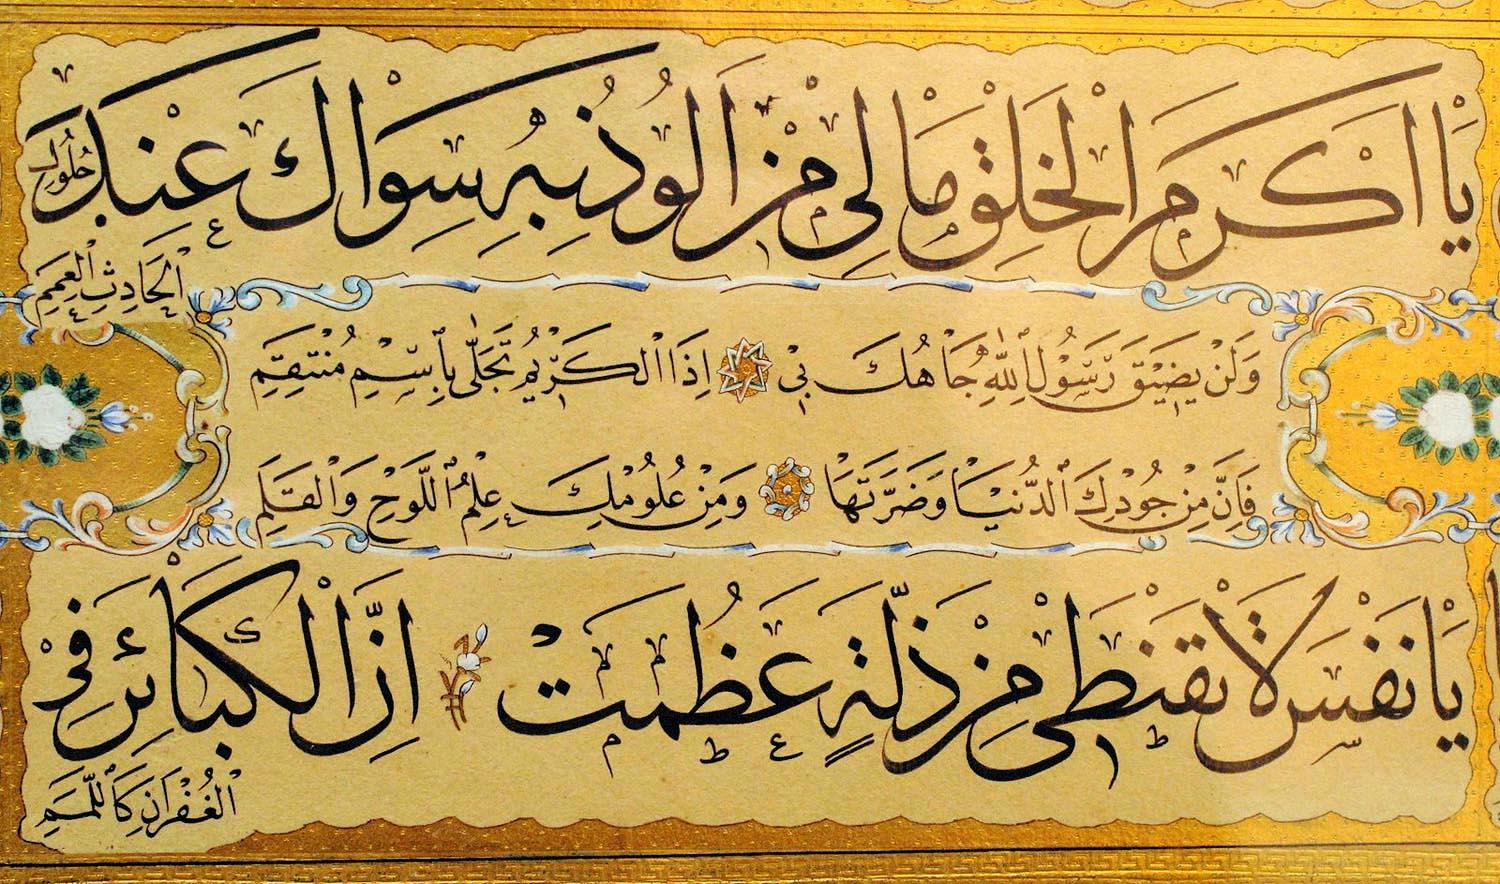 يَا اَكْرَمَ الْخَلْقِ مَا لِي مَنْ اَلُوذُ بِهِ سِوَاكَ عِنْدَ حُلُولِ
الْحَادِثِ الْعَمِمِ
وَلَنْ يَضِيقَ رَسُولَ اللّٰهِ جَاهُكَ بِي اِذَا الْكَرِيمُ تَجَلّٰى بِاِسْمِ مُنْتَقِمِ
فَاِنَّ مِنْ جُودِكَ الدُّنْيَا وَضَرَّتَهَا وَمِنْ عُلُومِكَ عِلْمُ اللَّوْحِ وَالْقَلَمِ
يَا نَفْسُ لَا تَقْنَطِي مِنْ ذَلَّةٍ عَظُمَتْ اِنَّ الْكَبَائِرَ فِي
الْغُفْرَانِ كَاللَّمَمِ